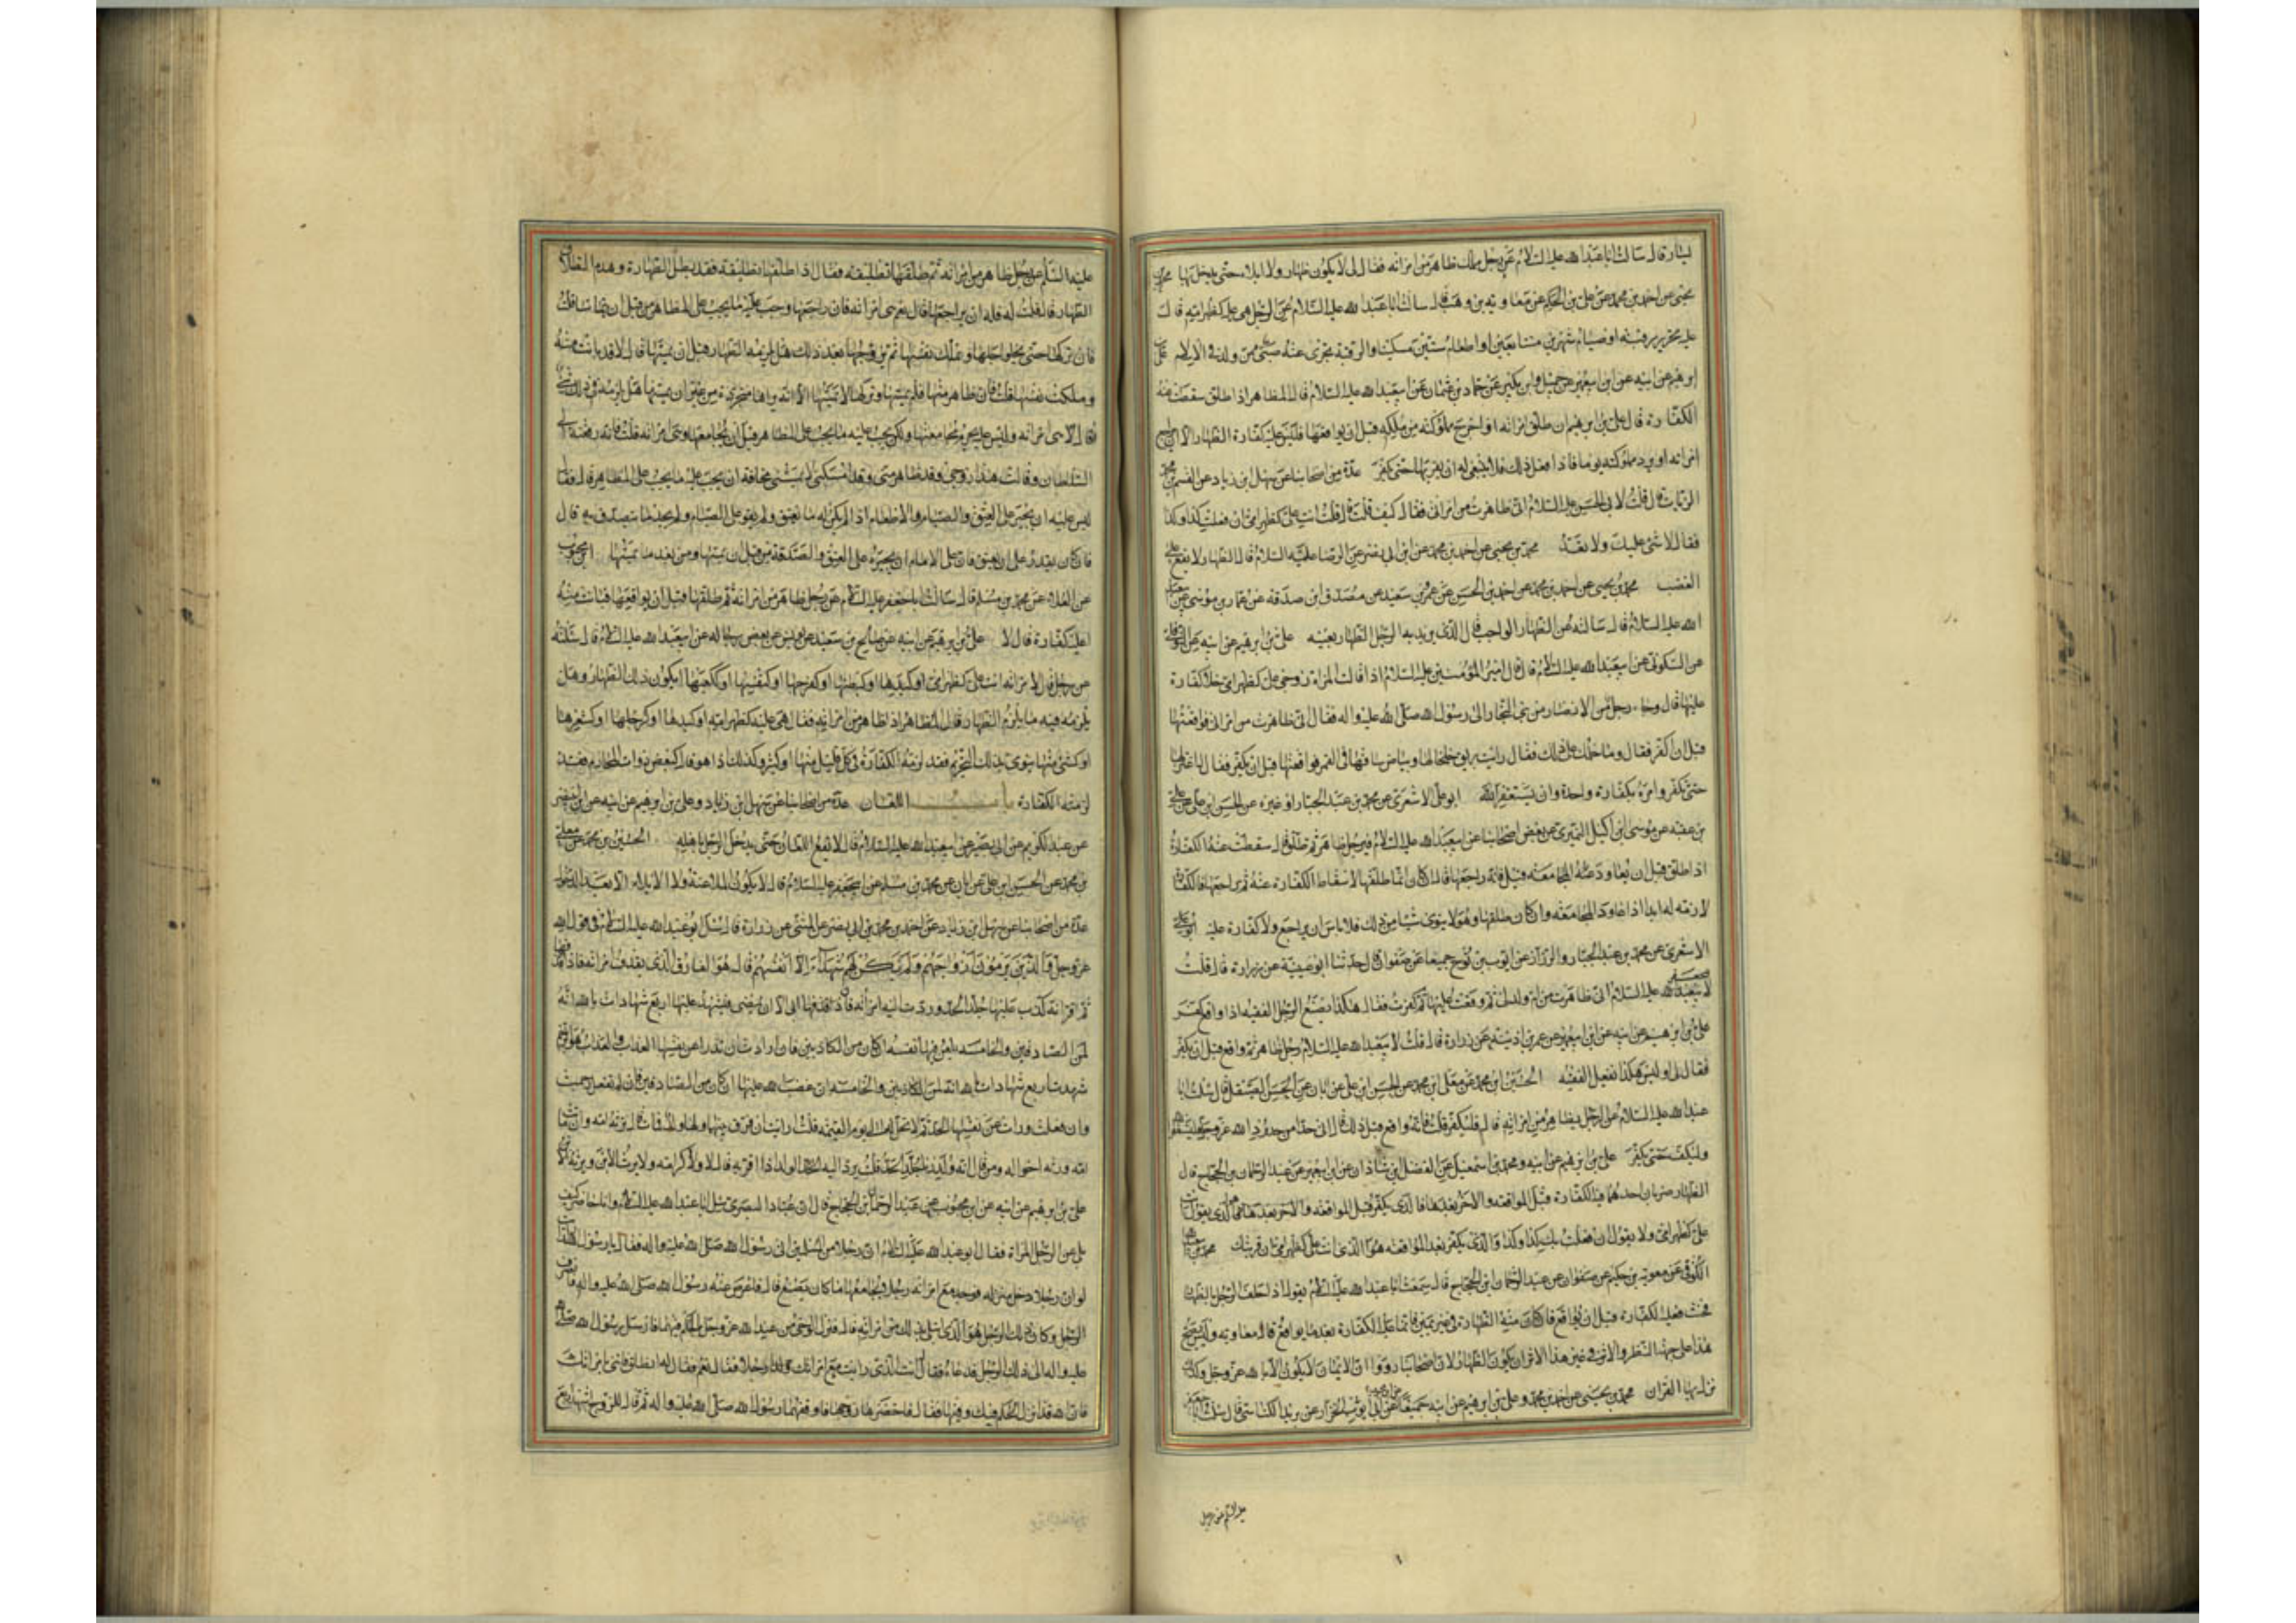 يسار قال سالت ابا عبد الله عليه السلام عن رجل مملك ظاهر من امراته فقال لى لا يكون ظهار ولا ايلاء حتى يدخل بها محمد بن
يحيى عن احمد بن محمد عن على بن الحكم عن معاوية بن وهب قال سالت ابا عبد الله عليه السلام عن الرجل هى عليه كظهر امه قال
عليه تحرير رقبة او صيام شهرين متتابعين او اطعام ستين مسكينا والرقبة تجزى عنه صبى ممن ولد فى الاسلام على بن
ابرهيم عن ابيه عن ابن ابى عمير عن جميل وابن بكير عن حماد بن عثمان عن ابى عبد الله عليه السلام قال المظاهر اذا طلق سقطت عنه
الكفارة قال على بن ابرهيم ان طلق امراته او اخرج مملوكته من ملكه قبل ان يواقعها فليس عليه كفارة الظهار الا ان يراجع
امراته او يرد مملوكته يوما فاذا فعل ذلك فلا ينبغى له ان يقربها حتى يكفر عدة من اصحابنا عن سهل بن زياد عن القسم بن محمد
الزيات قال قلت لابى الحسن عليه السلام انى ظاهرت من امراتى فقال كيف قلت قال قلت انت على كظهر امى ان فعلت كذا وكذا
فقال لا شئ عليك ولا تعد محمد بن يحيى عن احمد بن محمد عن ابن ابى نصر عن الرضا عليه السلام قال الظهار لا يقع على
الغضب محمد بن يحيى عن احمد بن محمد عن احمد بن الحسن عن عمرو بن سعيد عن مصدق ابن صدقه عن عمار بن موسى عن ابى عبد
الله عليه السلام قال سالته عن الظهار الواجب قال الذى يريد به الرجل الظهار بعينه على بن ابرهيم عن ابيه عن النوفلى
عن السكونى عن ابى عبد الله عليه السلام قال قال امير المؤمنين عليه السلام اذا قالت المراة زوجى على كظهر امى فلا كفارة
عليها قال وجاء رجل من الانصار من بنى النجار الى رسول الله صلى الله عليه واله فقال انى ظاهرت من امراتى فواقعتها
قبل ان اكفر فقال وما حملك على ذلك فقال رايت بريق خلخالها وبياض ساقها فى القمر فواقعتها قبل ان يكفر فقال له اعتزلها
حتى تكفر وامره بكفارة واحدة وان يستغفر الله ابو على الاشعرى عن محمد بن عبد الجبار او غيره عن الحسن ابن على عن على
بن عقبه عن موسى ابن اكيل النميرى عن بعض اصحابنا عن ابى عبد الله عليه السلام فى رجل ظاهر ثم طلق قال سقطت عنه الكفارة
اذا طلق قبل ان يعاود المجامعة قيل فانه راجعها قال ان كان انما طلقها لاسقاط الكفارة عنه ثم يراجعها فالكفارة
لازمه له ابدا اذا عاود المجامعة وان كان طلقها وهو لا ينوى شيئا من ذلك فلا باس ان يراجع ولا كفارة عليه ابو على
الاشعرى عن محمد بن عبد الجبار والرزاز عن ايوب بن نوح جميعا عن صفوان قال حدثنا ابو عيينة عن زرارة قال قلت
لابى جعفر عليه السلام انى ظاهرت من ام ولد لى ثم وقعت عليها ثم كفرت فقال هكذا يصنع الرجل الفقيه اذا واقع كفر
على بن ابرهيم عن ابيه عن ابن ابى عمير عن عمر بن اذينة عن زرارة قال قلت لابى عبد الله عليه السلام رجل ظاهر ثم واقع قبل ان يكفر
فقال لى او ليس هكذا يفعل الفقيه الحسين ابن محمد عن معلى ابن محمد عن الحسن ابن على عن ابان عن الحسن الصيقل قال سئلت ابا
عبد الله عليه السلام عن الرجل يظاهر من امراته قال فليكفر قلت فانه واقع قبل ذلك قال اتى حدا من حدود الله عز وجل فليستغفر الله
وليكف حتى يكفر على بن ابرهيم عن ابيه ومحمد بن اسمعيل عن الفضل ابن شاذان عن ابن ابى عمير عن عبد الرحمان بن الحجاج قال
الظهار ضربان احدهما فيه الكفارة قبل المواقعه والاخر بعدها فالذى يكفر قبل المواقعه والاخر بعدها فالذى يقول انت
على كظهر امى ولا يقول ان فعلت بك كذا وكذا والذى يكفر بعد المواقعه هو الذى انت على كظهر امى ان قربتك محمد بن ابى عبد الله
الكوفى عن معوية بن حكيم عن صفوان عن عبد الرحمان ابن الحجاج قال سمعت ابا عبد الله عليه السلام يقول اذا حلف الرجل بالظهار
فحنث فعليه الكفارة قبل ان يواقع فان كان منه الظهار فى غير يمين فانما عليه الكفارة بعد ما يواقع قال معاويه وليس يصح
هذا على جهة النظر والاثر فى غير هذا الاثر ان يكون الظهار لان اصحابنا رووا ان الايمان لا يكون الا بالله عز وجل وكذلك
نزل بها القران محمد بن يحيى عن احمد بن محمد وعلى بن ابرهيم عن ابيه جميعا عن ابن محبوب عن ابى ايوب الخزاز عن يزيد الكناسى قال سئلت ابا جعفر
عليه السلم عن رجل
عليه السلم عن رجل ظاهر من امراته ثم طلقها تطليقه فقال اذا طلقها تطليقه فقد بطل الظهارة وهدم الطلاق
الظهار قال فقلت له فله ان يراجعها قال نعم هى امراته فان راجعها وجب عليه ما يجب على المظاهر من قبل ان يتماسا قلت
فان تركها حتى يحلو اجلها وتملك نفسها ثم تزوجها بعد ذلك هل يلزمه الظهار قبل ان يمسها قال لا قد بانت منه
وملكت نفسها قلت فان ظاهر منها فلم يمسها وتركها لا يمسها الا انه يراها متجردة من غير ان يمسها هل يلزمه فى ذلك شئ
قال هى امراته وليس عليه يحرم مجامعتها ولكن يجب عليه ما يجب على المظاهر قبل ان يجامعها وهى امراته قلت فانه رفعته الى
السلطان وقالت هذا زوجى وقد ظاهر منى وقد امسكنى لا يمسنى مخافة ان يجب عليه ما يجب على المظاهر قال فقال
ليس عليه ان يجبر على العتق والصيام والاطعام اذا لم يكن له ما يعتق ولم يقو على الصيام ولم يجد ما يتصدق به قال
فان كان يقدر على ان يعتق فان على الامام ان يجبره على العتق والصدقة من قبل ان يمسها ومن بعد ما يمسها ابن محبوب
عن العلاء عن محمد بن مسلم قال سالت ابا جعفر عليه السلام عن رجل ظاهر من امراته ثم طلقها قبل ان يواقعها فبانت منه
اعليه كفارة قال لا على بن ابرهيم عن ابيه عن صالح بن سعيد عن يونس عن بعض رجاله عن ابى عبد الله عليه السلام قال سئلته
عن رجل قال لامراته انت على كظهر امى او كيدها او كبطنها او كفرجها او كنفسها او ككعبها ايكون ذلك الظهار وهل
يلزمه فيه ما يلزم الظهار قال المظاهر اذا ظاهر من امراته فقال هى عليه كظهر امه او كيدها او كرجلها او كشعرها
او كشئ منها ينوى بذلك التحريم فقد لزمته الكفارة فى كل قليل منها او كثير وكذلك اذا هو قال كبعض ذوات المحارم فقد
لزمته الكفارة باب اللعان عدة من اصحابنا عن سهل ابن زياد وعلى بن ابرهيم عن ابيه عن ابن ابى نصر
عن عبد الكريم عن ابى بصير عن ابى عبد الله عليه السلام قال لا يقع اللعان حتى يدخل الرجل باهله الحسين بن محمد عن معلى
بن محمد عن الحسن ابن على عن ابان عن محمد بن مسلم عن ابى جعفر عليه السلام قال لا يكون الملاعنة ولا الايلاء الا بعد الدخول
عدة من اصحابنا عن سهل ابن زياد عن احمد بن محمد بن ابى نصر عن المثنى عن زرارة قال سئل ابو عبد الله عليه السلام فى قول الله
عز وجل والذين يرمون ازواجهم ولم يكن لهم شهداء الا انفسهم قال هو القاذف الذى يقذف امراته فاذا قذفها
ثم اقر انه كذب عليها جلد الحد وردت اليه امراته فان ابى الا ان يمضى فيشهد عليها اربع شهادات بالله انه
لمن الصادقين والخامسه يلعن فيها نفسه ان كان من الكاذبين فان ارادت ان تدرا عن نفسها العذاب والعذاب هو الرجم
شهدت اربع شهادات بالله انه لمن الكاذبين والخامسة ان غضب الله عليها ان كان من الصادقين فان لم تفعل رجمت
وان فعلت درات عن نفسها الحد ثم لا تحل له الى يوم القيمه قلت ارايت ان فرق بينهما ولها ولد فمات قال ترثه امه وان ماتت
امه ورثه اخواله ومن قال انه ولد زنا جلد الحد قلت يرد اليه الولد اذا اقر به قال لا ولا كرامة ولا يرث الابن ويرثه الابن
على بن ابرهيم عن ابيه عن ابن محبوب عن عبد الرحمان ابن الحجاج قال ان عبادا البصرى سئل ابا عبد الله عليه السلام وانا حاضر كيف
يلاعن الرجل المراة فقال ابو عبد الله عليه السلام ان رجلا من المسلمين اتى رسول الله صلى الله عليه واله فقال يا رسول الله ارايت
لو ان رجلا دخل منزله فوجد مع امراته رجلا يجامعها ما كان يصنع قال فاعرض عنه رسول الله صلى الله عليه واله فانصرف
الرجل وكان ذلك الرجل هو الذى ابتلى بذلك من امراته قال فنزل الوحى من عند الله عز وجل بالحكم فيهما فارسل رسول الله صلى الله
عليه واله الى ذلك الرجل فدعاه فقال انت الذى رايت مع امراتك رجلا فقال نعم فقال له انطلق فاتنى بامراتك
فان الله قد انزل الحكم فيك وفيها فقال فاحضرها زوجها فاوقفهما رسول الله صلى الله عليه واله ثم قال للزوج اشهد اربع